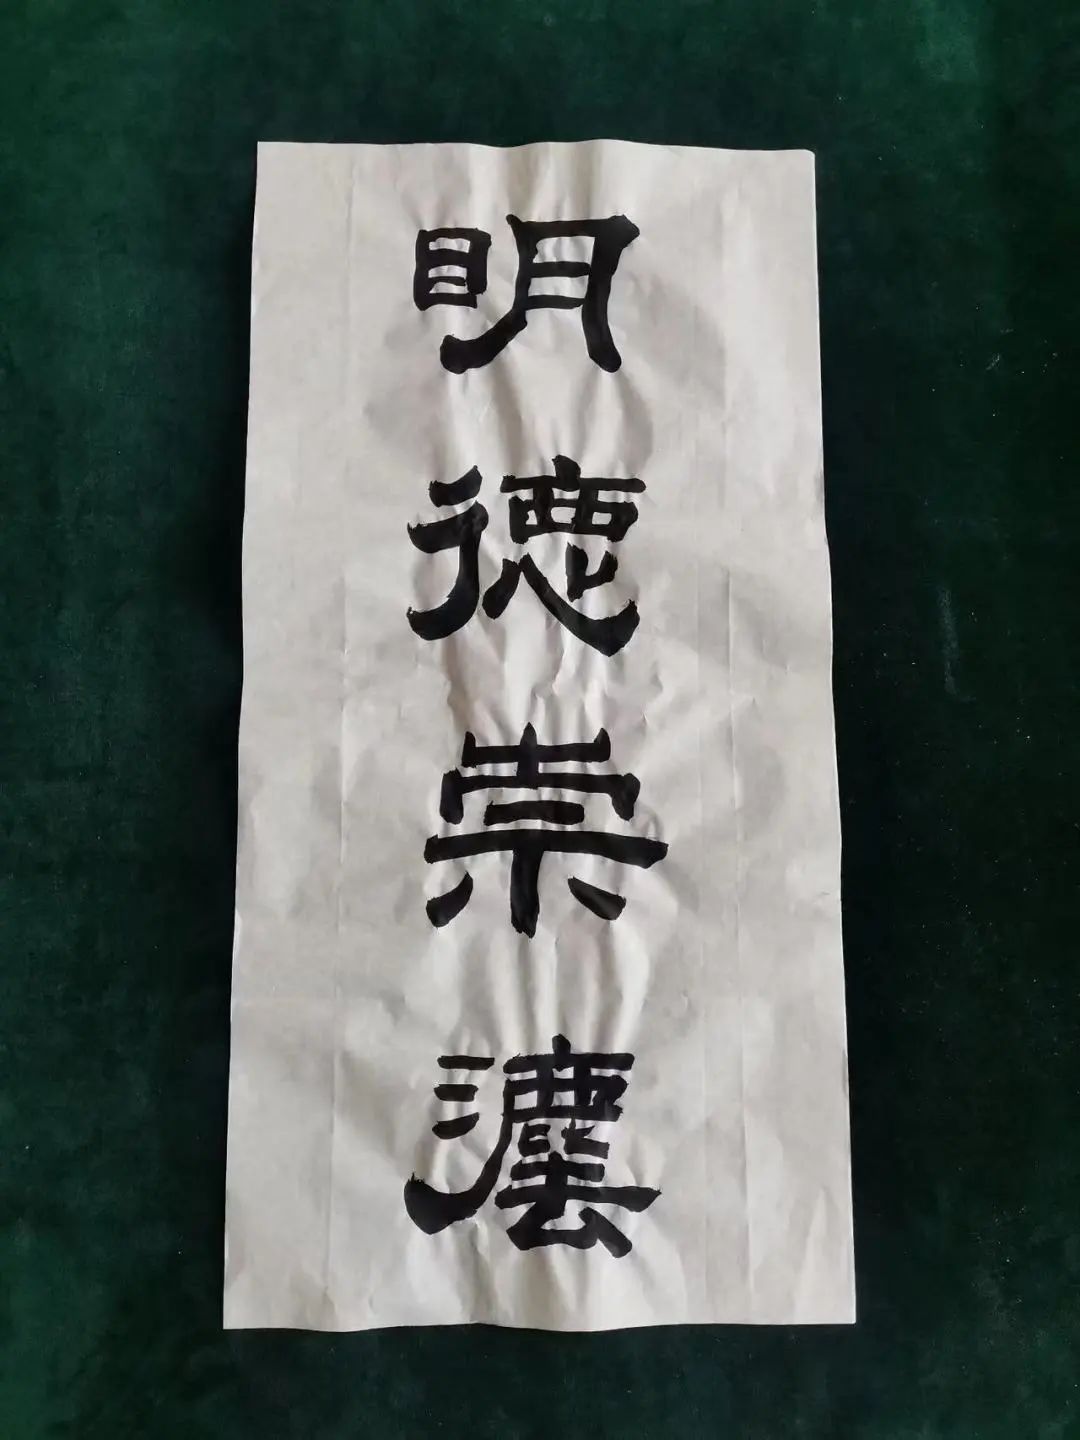 明德崇灋